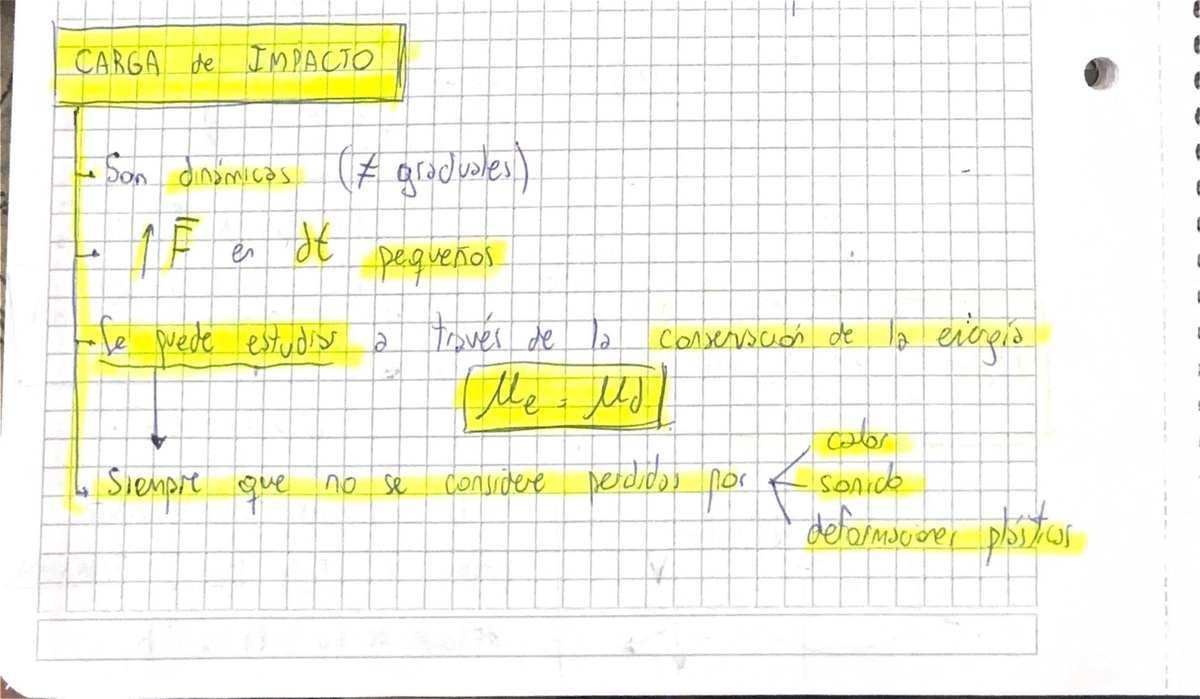 CARGA de IMPACTO
Son dinámicas (≠ graduales)
↑ F̅ en dt pequeños
Se puede estudiar a través de la conservación de la energía
Ue = Ud
Siempre que no se considere perdidas por
calor
sonido
deformaciones plásticas